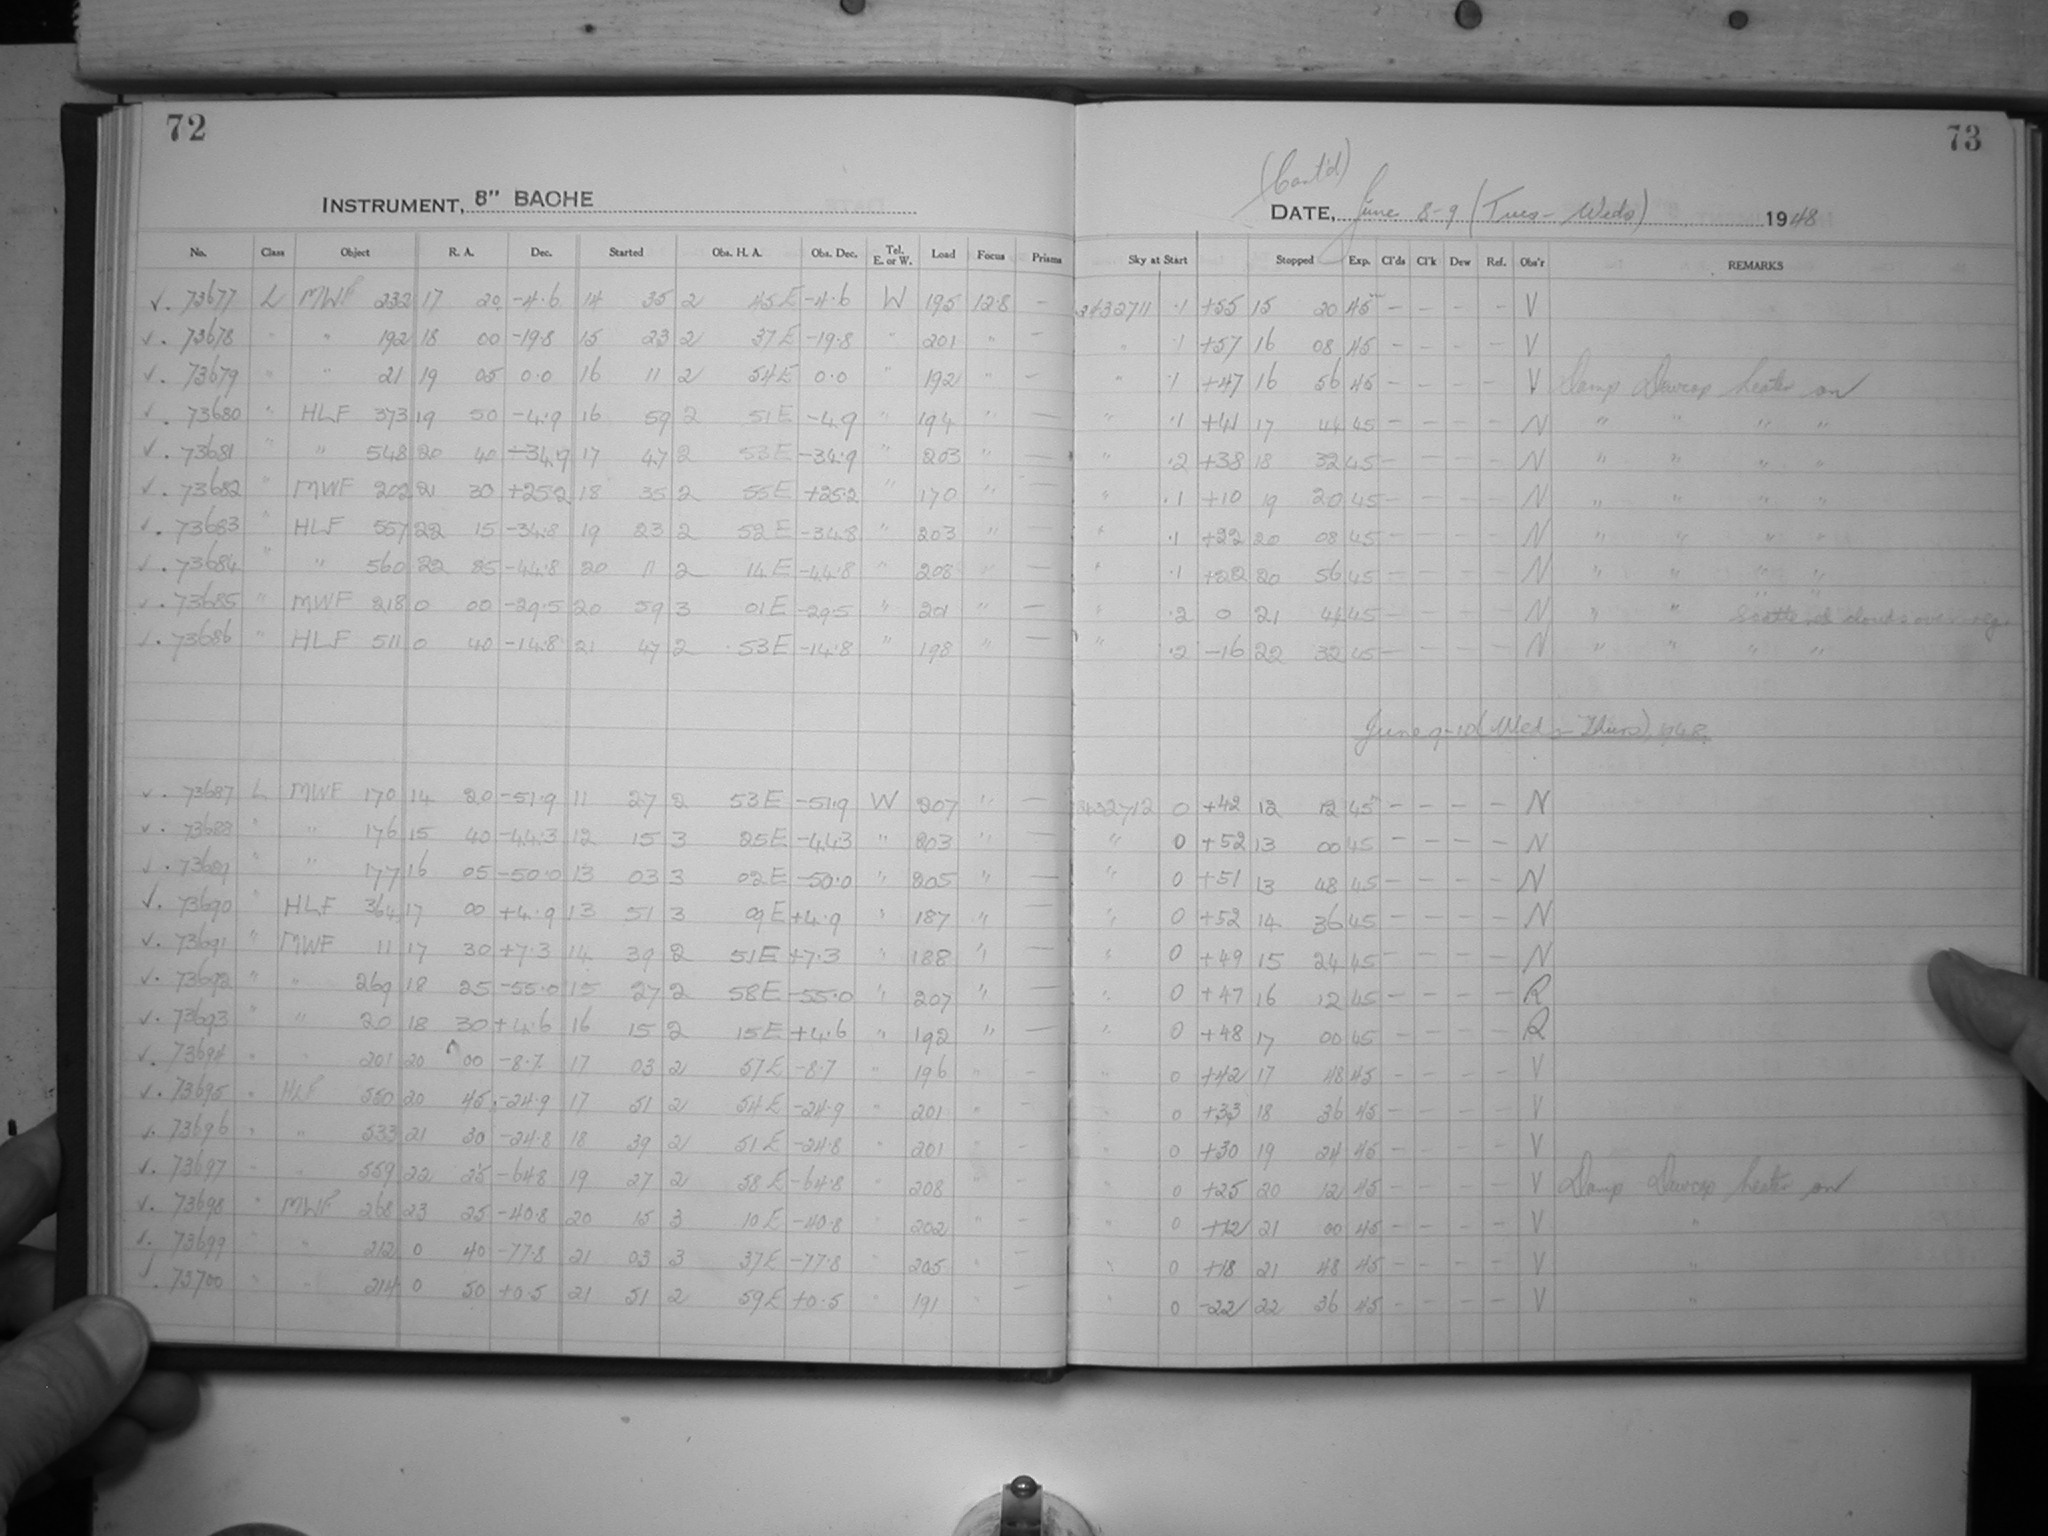 72
73
INSTRUMENT, 8" BACHE
(Cont'd)
DATE, June 8-9 (Tues - Weds) 1948
No. Class Object R. A. Dec. Started Obs. H. A. Obs. Dec. Tel. E. or W. Load Focus Prisms Sky at Start Stopped Exp. Cl'ds Cl'k Dew Ref. Obs'r REMARKS
√. 73677 L MWF 232 17 20 -4.6 14 35 2 45E -4.6 W 195 12.8 - 2432711 .1 +55 15 20 45 - - - - V
√. 73678 " " 192 18 00 -19.8 15 23 2 37E -19.8 " 201 " - " .1 +57 16 08 45 - - - - V
√. 73679 " " 21 19 05 0.0 16 11 2 54E 0.0 " 192 " - " .1 +47 16 56 45 - - - - V Damp Dewcap heater on
√. 73680 " HLF 373 19 50 -4.9 16 59 2 51E -4.9 " 194 " - " .1 +41 17 44 45 - - - - N " " " "
√. 73681 " " 548 20 40 -34.9 17 47 2 53E -34.9 " 203 " - " .2 +38 18 32 45 - - - - N " " " "
√. 73682 " MWF 202 21 30 +25.2 18 35 2 55E +25.2 " 170 " - " .1 +10 19 20 45 - - - - N " " " "
√. 73683 " HLF 557 22 15 -34.8 19 23 2 52E -34.8 " 203 " - " .1 +22 20 08 45 - - - - N " " " "
√. 73684 " " 560 22 25 -44.8 20 11 2 14E -44.8 " 208 " - " .1 +22 20 56 45 - - - - N " " " "
√. 73685 " MWF 218 0 00 -29.5 20 59 3 01E -29.5 " 201 " - " .2 0 21 44 45 - - - - N " " " " Scattered clouds over
√. 73686 " HLF 511 0 40 -14.8 21 47 2 53E -14.8 " 198 " - " .2 -16 22 32 45 - - - - N " " " "
June 9-10 (Wed - Thurs), 1948.
√. 73687 L MWF 170 14 20 -51.9 11 27 2 53E -51.9 W 207 " - 2432712 0 +42 12 12 45 - - - - N
√. 73688 " " 176 15 40 -44.3 12 15 3 25E -44.3 " 203 " - " 0 +52 13 00 45 - - - - N
√. 73689 " " 177 16 05 -50.0 13 03 3 02E -50.0 " 205 " - " 0 +51 13 48 45 - - - - N
√. 73690 " HLF 364 17 00 +4.9 13 51 3 09E +4.9 " 187 " - " 0 +52 14 36 45 - - - - N
√. 73691 " MWF 11 17 30 +7.3 14 39 2 51E +7.3 " 188 " - " 0 +49 15 24 45 - - - - N
√. 73692 " " 269 18 25 -55.0 15 27 2 58E -55.0 " 207 " - " 0 +47 16 12 45 - - - - R
√. 73693 " " 20 18 30 +4.6 16 15 2 15E +4.6 " 192 " - " 0 +48 17 00 45 - - - - R
√. 73694 " " 201 20 00 -8.7 17 03 2 57E -8.7 " 196 " - " 0 +42 17 48 45 - - - - V
√. 73695 " HLF 550 20 45 -24.9 17 51 2 54E -24.9 " 201 " - " 0 +33 18 36 45 - - - - V
√. 73696 " " 533 21 30 -24.8 18 39 2 51E -24.8 " 201 " - " 0 +30 19 24 45 - - - - V
√. 73697 " " 559 22 25 -64.8 19 27 2 58E -64.8 " 208 " - " 0 +25 20 12 45 - - - - V Damp Dewcap heater on
√. 73698 " MWF 268 23 25 -40.8 20 15 3 10E -40.8 " 202 " - " 0 +12 21 00 45 - - - - V "
√. 73699 " " 212 0 40 -77.8 21 03 3 37E -77.8 " 205 " - " 0 +18 21 48 45 - - - - V "
√. 73700 " " 214 0 50 +0.5 21 51 2 59E +0.5 " 191 " - " 0 -22 22 36 45 - - - - V "